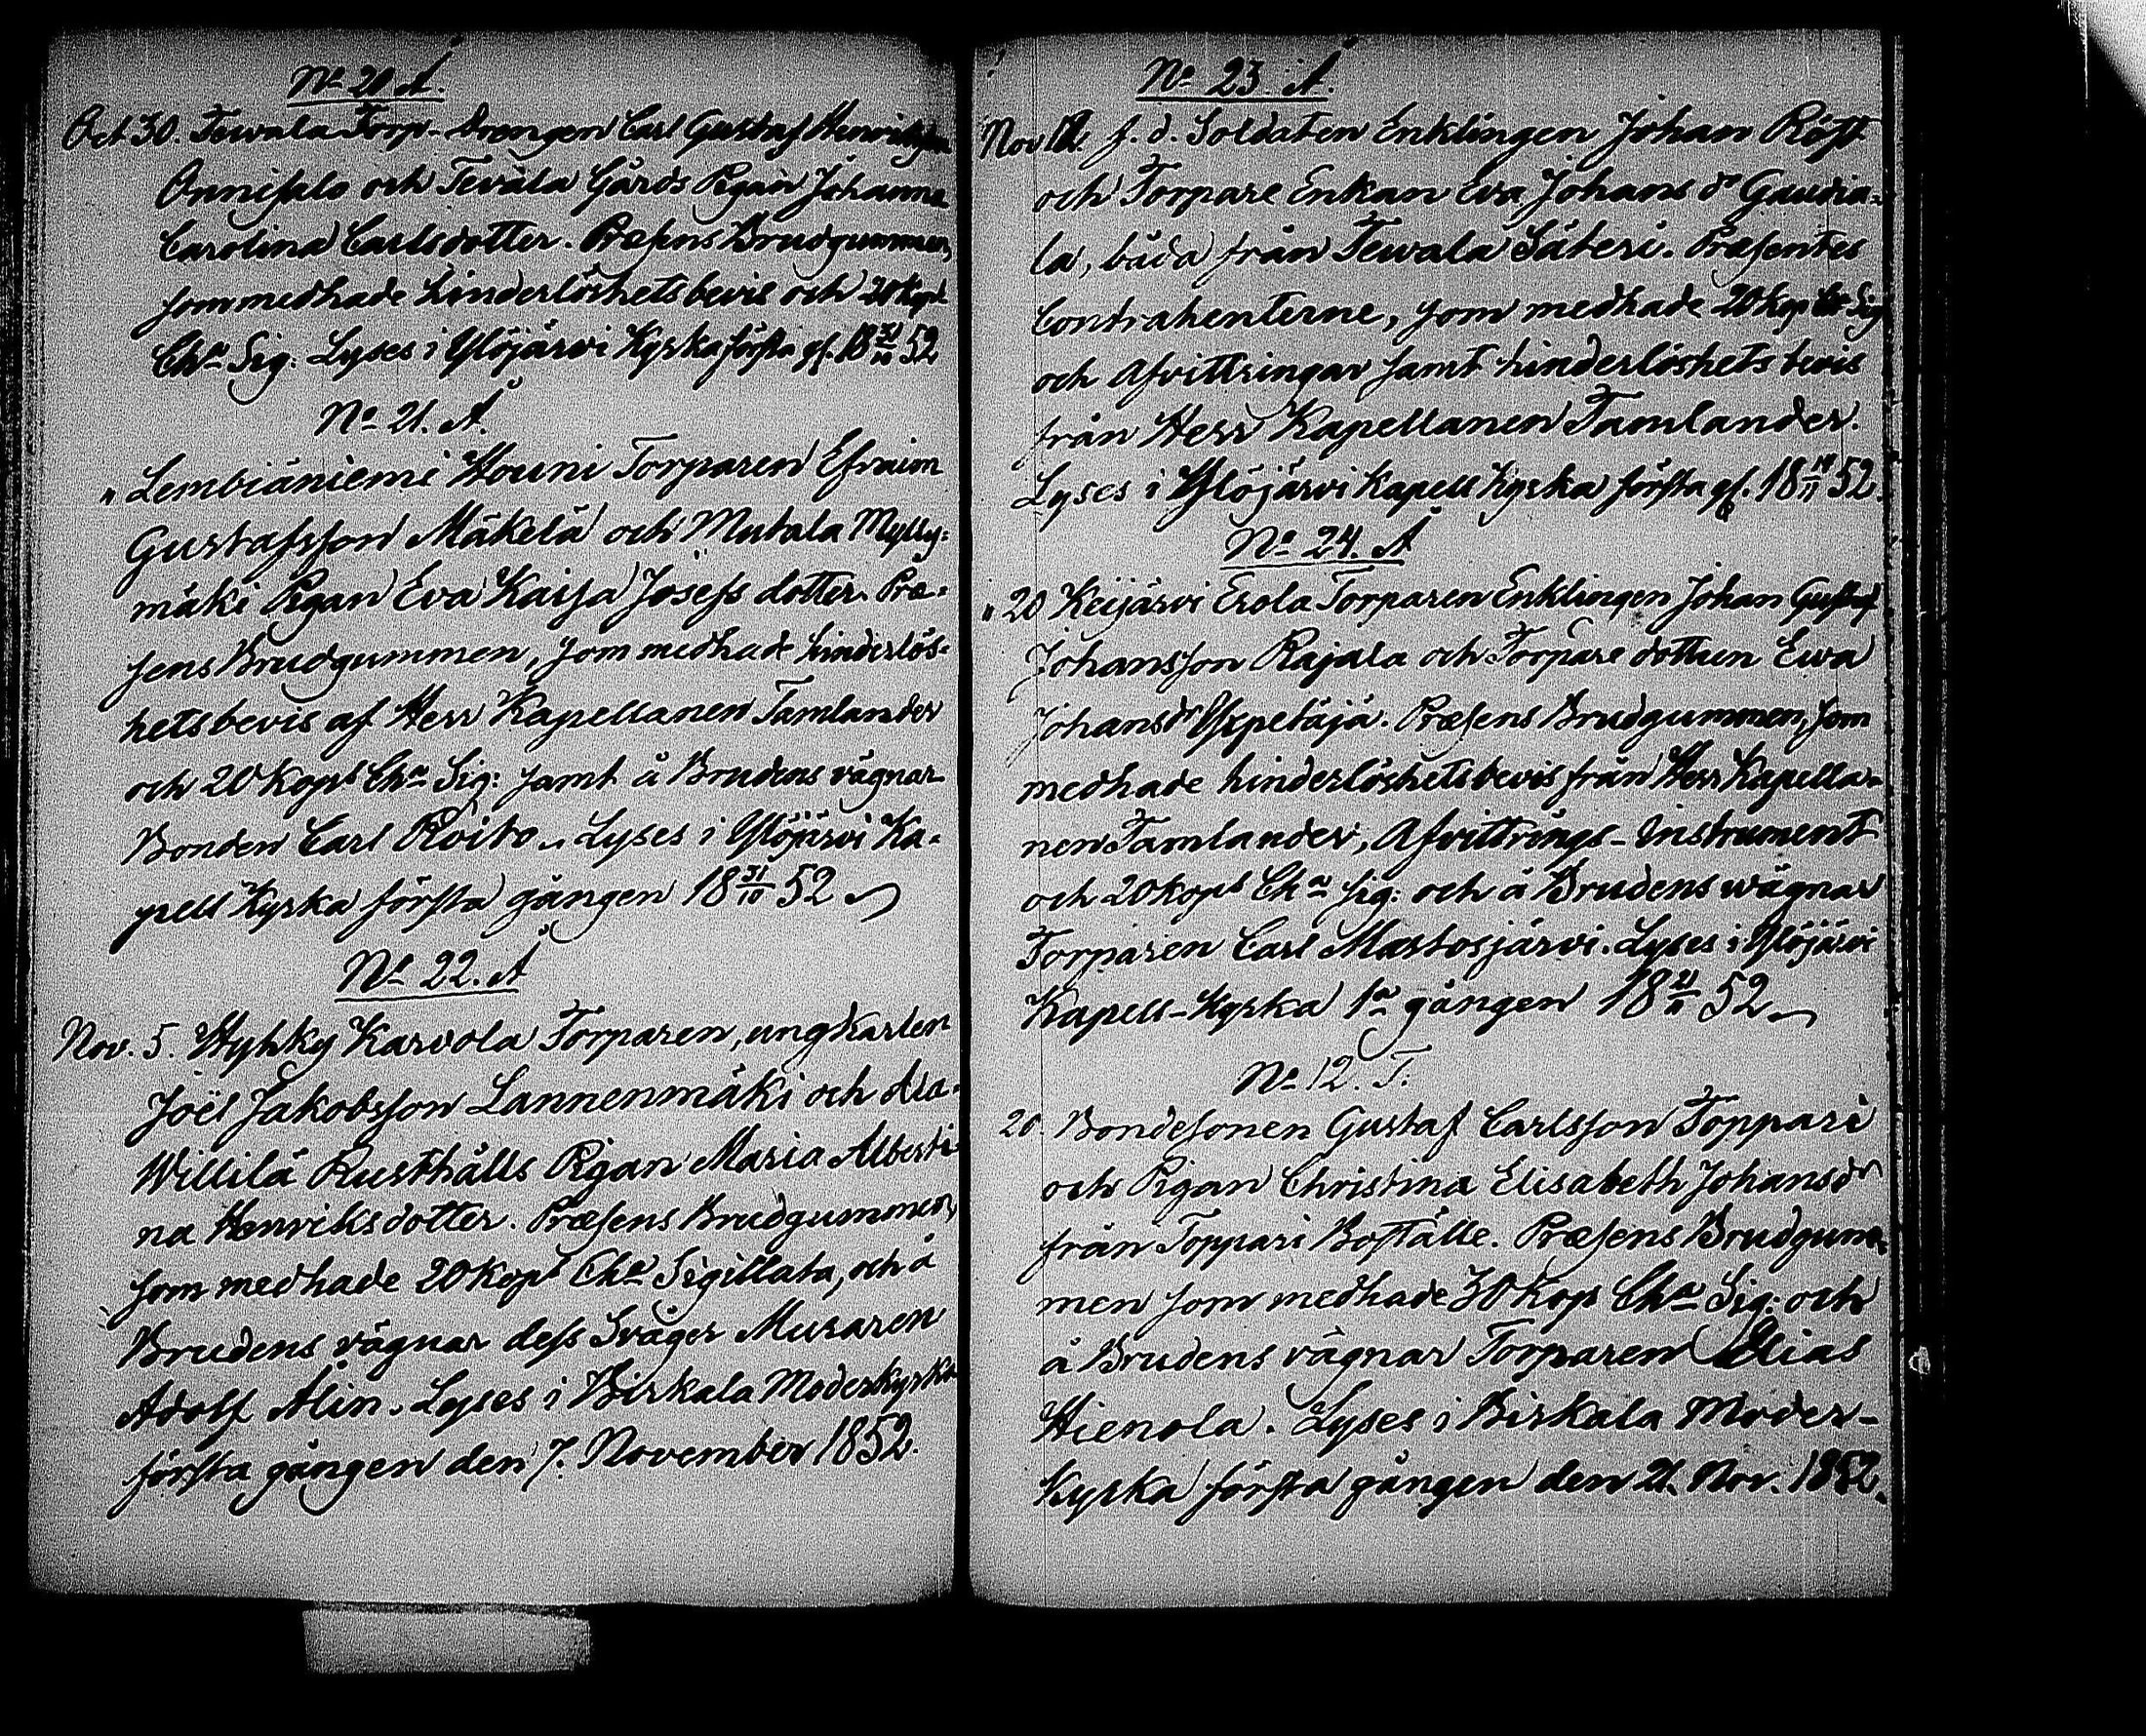 No 20. Å.
Oct. 30. Tewala Torp-Drengen Carl Gustaf Henriksson
Onnisalo och Tevala Gårds Pigan Johanna
Carolina Carlsdotter. Præsens Brudgummen,
som medhade hinderlöshetsbevis och 20 kops
Cha Sig: Lyses i Ylöjärvi Kyrka första gg. 18 31/10 52
No 21. Å.
" Lembiäniemi Houni Torparen Efraim
Gustafsson Mäkelä och Mutala Mylly=
mäki Pigan Eva Kaisa Josefs dotter. Præ=
sens Brudgummen, som medhade hinderlös=
hetsbevis af Herr Kapellanen Tamlander
och 20 Kops Cha Sig: samt å Brudens vägnar
Bonden Carl Roito. Lyses i Ylöjärvi Ka=
pell Kyrka första gången 18 31/10 52
No 22. Å
Nov. 5. Hyhky Karvola Torparen, ungkarlen
Joël Jakobsson Lannenmäki och Ala=
Willilä Rusthålls Pigan Maria Alberti=
na Henriksdotter. Præsens Brudgummen,
som medhade 20 Kops Cha Sigillata, och å
Brudens vägnar dess Svåger Muraren
Adolf Alin. Lyses i Birkala Moderkyrka
första gången den 7. November 1852.
No 23. Å.
Nov f. d. Soldaten Enklingen Johan Röst
och Torpare Enkan Eva Johans dr Gaudia=
la, båda från Tewala Säteri. Præsentes
Contrahenterne, som medhade 20 kop Ca Sig
och Afvittringar samt hinderlöshets bevis
från Herr Kapellanen Tamlander.
Lyses i Ylöjärvi Kapell Kyrka första gg. 18 14/11 52.
No 24. Å
" 20 Keijärvi Erola Torparen Enklingen Johan Gustaf
Johansson Rajala och Torpare dottren Ewa
Johansdr Yspetäjä. Præsens Brudgummen, som
medhade hinderlöshetsbevis från Herr Kapella=
nen Tamlander, Afvittrings-Instrument
och 20 kops Cha Sig: och å Brudens wägnar
Torparen Carl Mastosjärvi. Lyses i Ylöjärvi
Kapell-Kyrka 1a gången 18 21/11 52
No 12. T.
20. Bondesonen Gustaf Carlsson Toppari
och Pigan Christina Elisabeth Johansdr
från Toppari Boställe. Præsens Brudgum=
men som medhade 30 Kops Cha Sig: och
å Brudens vägnar Torparen Elias
Hienola. Lyses i Birkala Moder-
Kyrka första gången den 21. Nov. 1852.